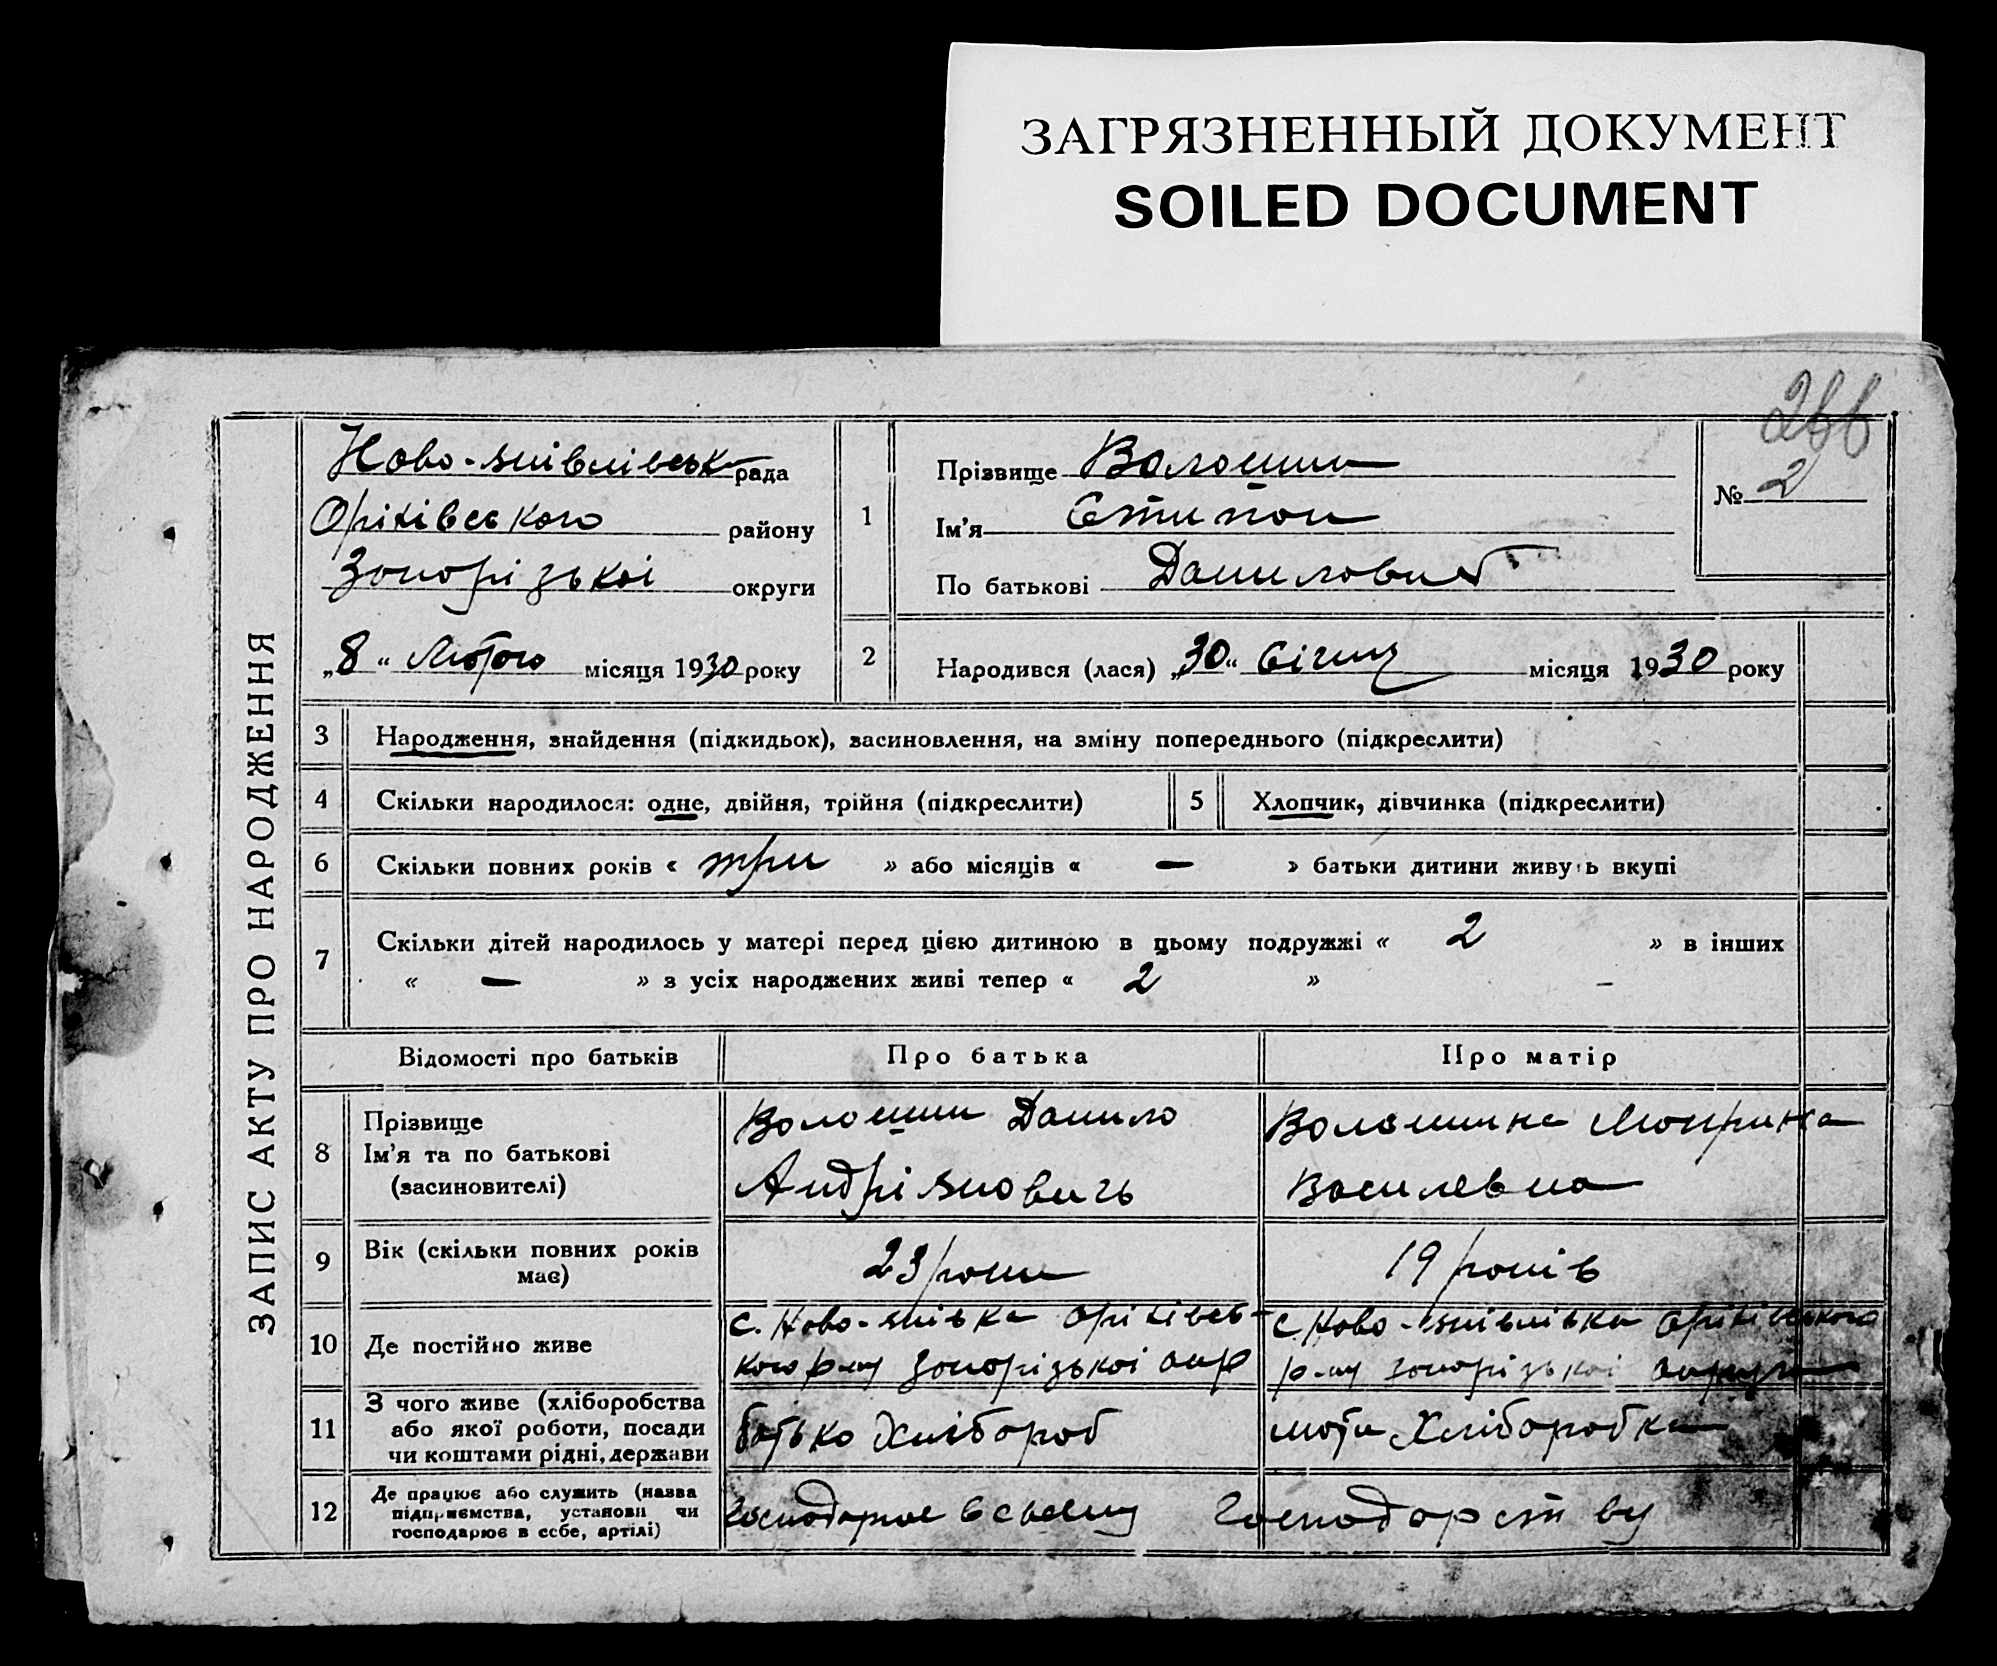 ЗАГРЯЗНЕННЫЙ ДОКУМЕНТ
SOILED DOCUMENT
266
ЗАПИС АКТУ ПРО НАРОДЖЕННЯ
Ново-янівлівськ рада
Оріхівського району
Запорізької округи
„8“ Лютого місяця 1930 року
1
Прізвище Волошин
Ім'я Степан
По батькові Данилович
№ 2
2 Народився (лася) „30“ Січня місяця 1930 року
3 Народження, знайдення (підкидьок), засиновлення, на зміну попереднього (підкреслити)
4 Скільки народилося: одне, двійня, трійня (підкреслити) 5 Хлопчик, дівчинка (підкреслити)
6 Скільки повних років « три » або місяців « — » батьки дитини живуть вкупі
7 Скільки дітей народилось у матері перед цією дитиною в цьому подружжі « 2 » в інших
« — » з усіх народжених живі тепер « 2 »
Відомості про батьків Про батька Про матір
8 Прізвище
Ім'я та по батькові
(засиновителі)
Волошин Данило
Андріянович
Волошина Мокрина
Василевна
9 Вік (скільки повних років
має)
23 роки 19 років
10 Де постійно живе
с. Ново-янівка Оріхівсь-
кого р-ну Запорізької окр
с. Ново-янівлівка Оріхівського
р-ну Запорізької округи
11 З чого живе (хліборобства
або якої роботи, посади
чи коштами рідні, держави
батько Хлібороб мати Хліборобка
12 Де працює або служить (назва
підприємства, установи чи
господарює в себе, артілі)
Господарює в своєму Господарству